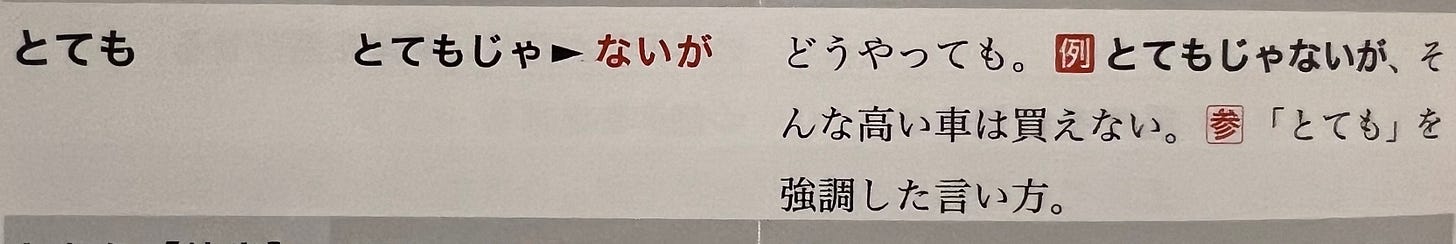 とても とてもじゃ►ないが どうやっても。例とてもじゃないが、そ
んな高い車は買えない。参「とても」を
強調した言い方。